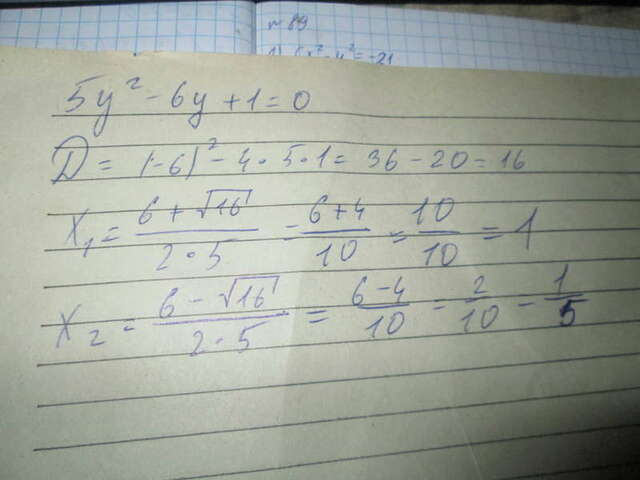 № 89
5y² - 6y + 1 = 0
D = (-6)² - 4 · 5 · 1 = 36 - 20 = 16
X₁ = (6 + √16)/(2 · 5) = (6 + 4)/10 = 10/10 = 1
X₂ = (6 - √16)/(2 · 5) = (6 - 4)/10 = 2/10 = 1/5